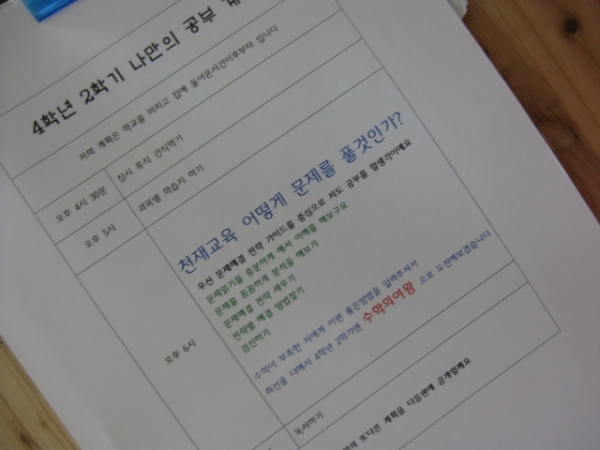 4학년 2학기 나만의 공부
저의 계획은 학교를 마치고 집에 돌아온시간이후부터 입니다
오후 4시 30분 잠시 휴식 간식먹기
오후 5시 과목별 학습지 하기
오후 6시
천재교육 어떻게 문제를 풀것인가?
우선 문제해결 전략 가이드를 중심으로 저도 공부를 할생각이에요
문제읽기를 충분하게 해서 이해를 해보구요
문제를 꼼꼼하게 분석을 해보기
문제해결 전략 세우기
전략별 해결 방법찾기
검산하기
수학이 부족한 저에게 이런 좋은방법을 알려주셔서
최선을 다해서 4학년 2학기엔 수학의여왕 으로 도전해보겠습니다
독서하기
또다른 계획을 다음편에 공개할께요